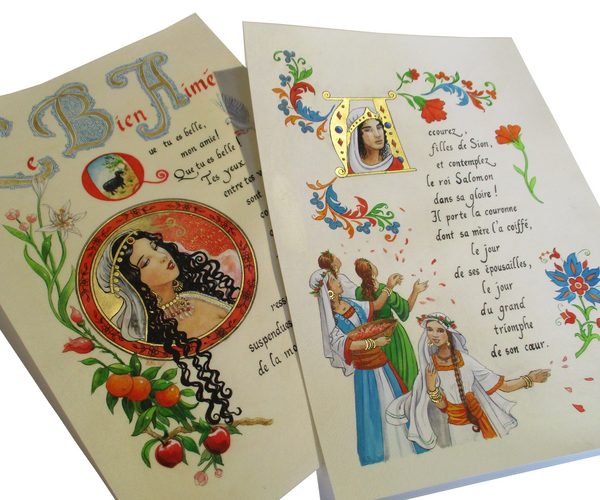 e Bien Aimé
Que tu es belle,
mon amie!
Que tu es belle
Tes yeux
entre tes
ress
suspendues
de la mo
Accourez,
filles de Sion,
et contemplez
le roi Salomon
dans sa gloire !
Il porte la couronne
dont sa mère l'a coiffé,
le jour
de ses épousailles,
le jour
du grand
triomphe
de son cœur.